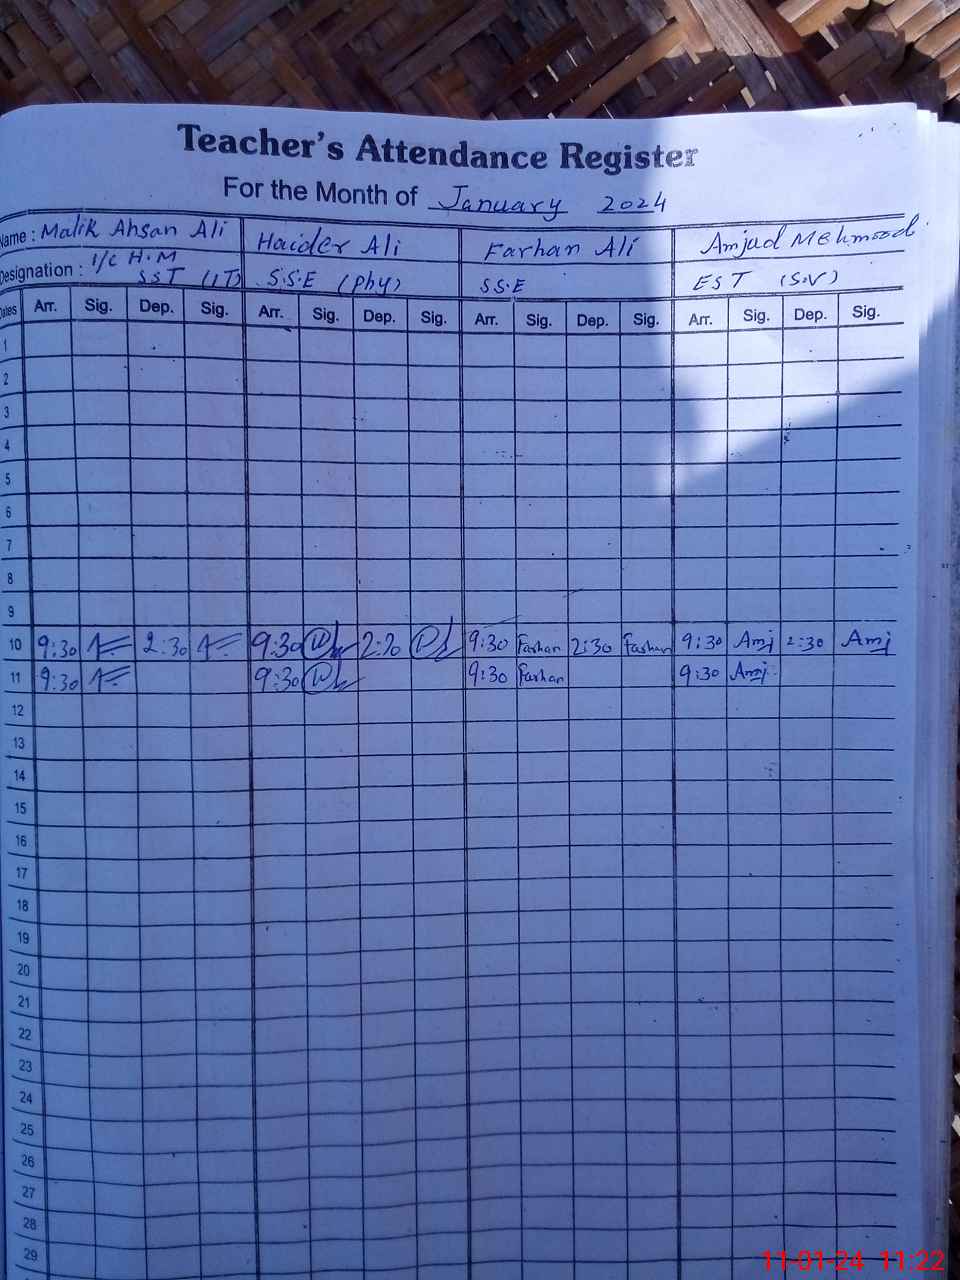 Teacher's Attendance Register
For the Month of January 2024
Name : Malik Ahsan Ali Haider Ali Farhan Ali Amjad Mehmood
Designation : I/C H.M SST (IT) S.S.E (Phy) S.S.E EST (S.V)
Dates Arr. Sig. Dep. Sig. Arr. Sig. Dep. Sig. Arr. Sig. Dep. Sig. Arr. Sig. Dep. Sig.
1
2
3
4
5
6
7
8
9
10 9:30 2:30 9:30 2:30 9:30 Farhan 2:30 Farhan 9:30 Amj 2:30 Amj
11 9:30 9:30 9:30 Farhan 9:30 Amj
12
13
14
15
16
17
18
19
20
21
22
23
24
25
26
27
28
29
11-01-24 11:22